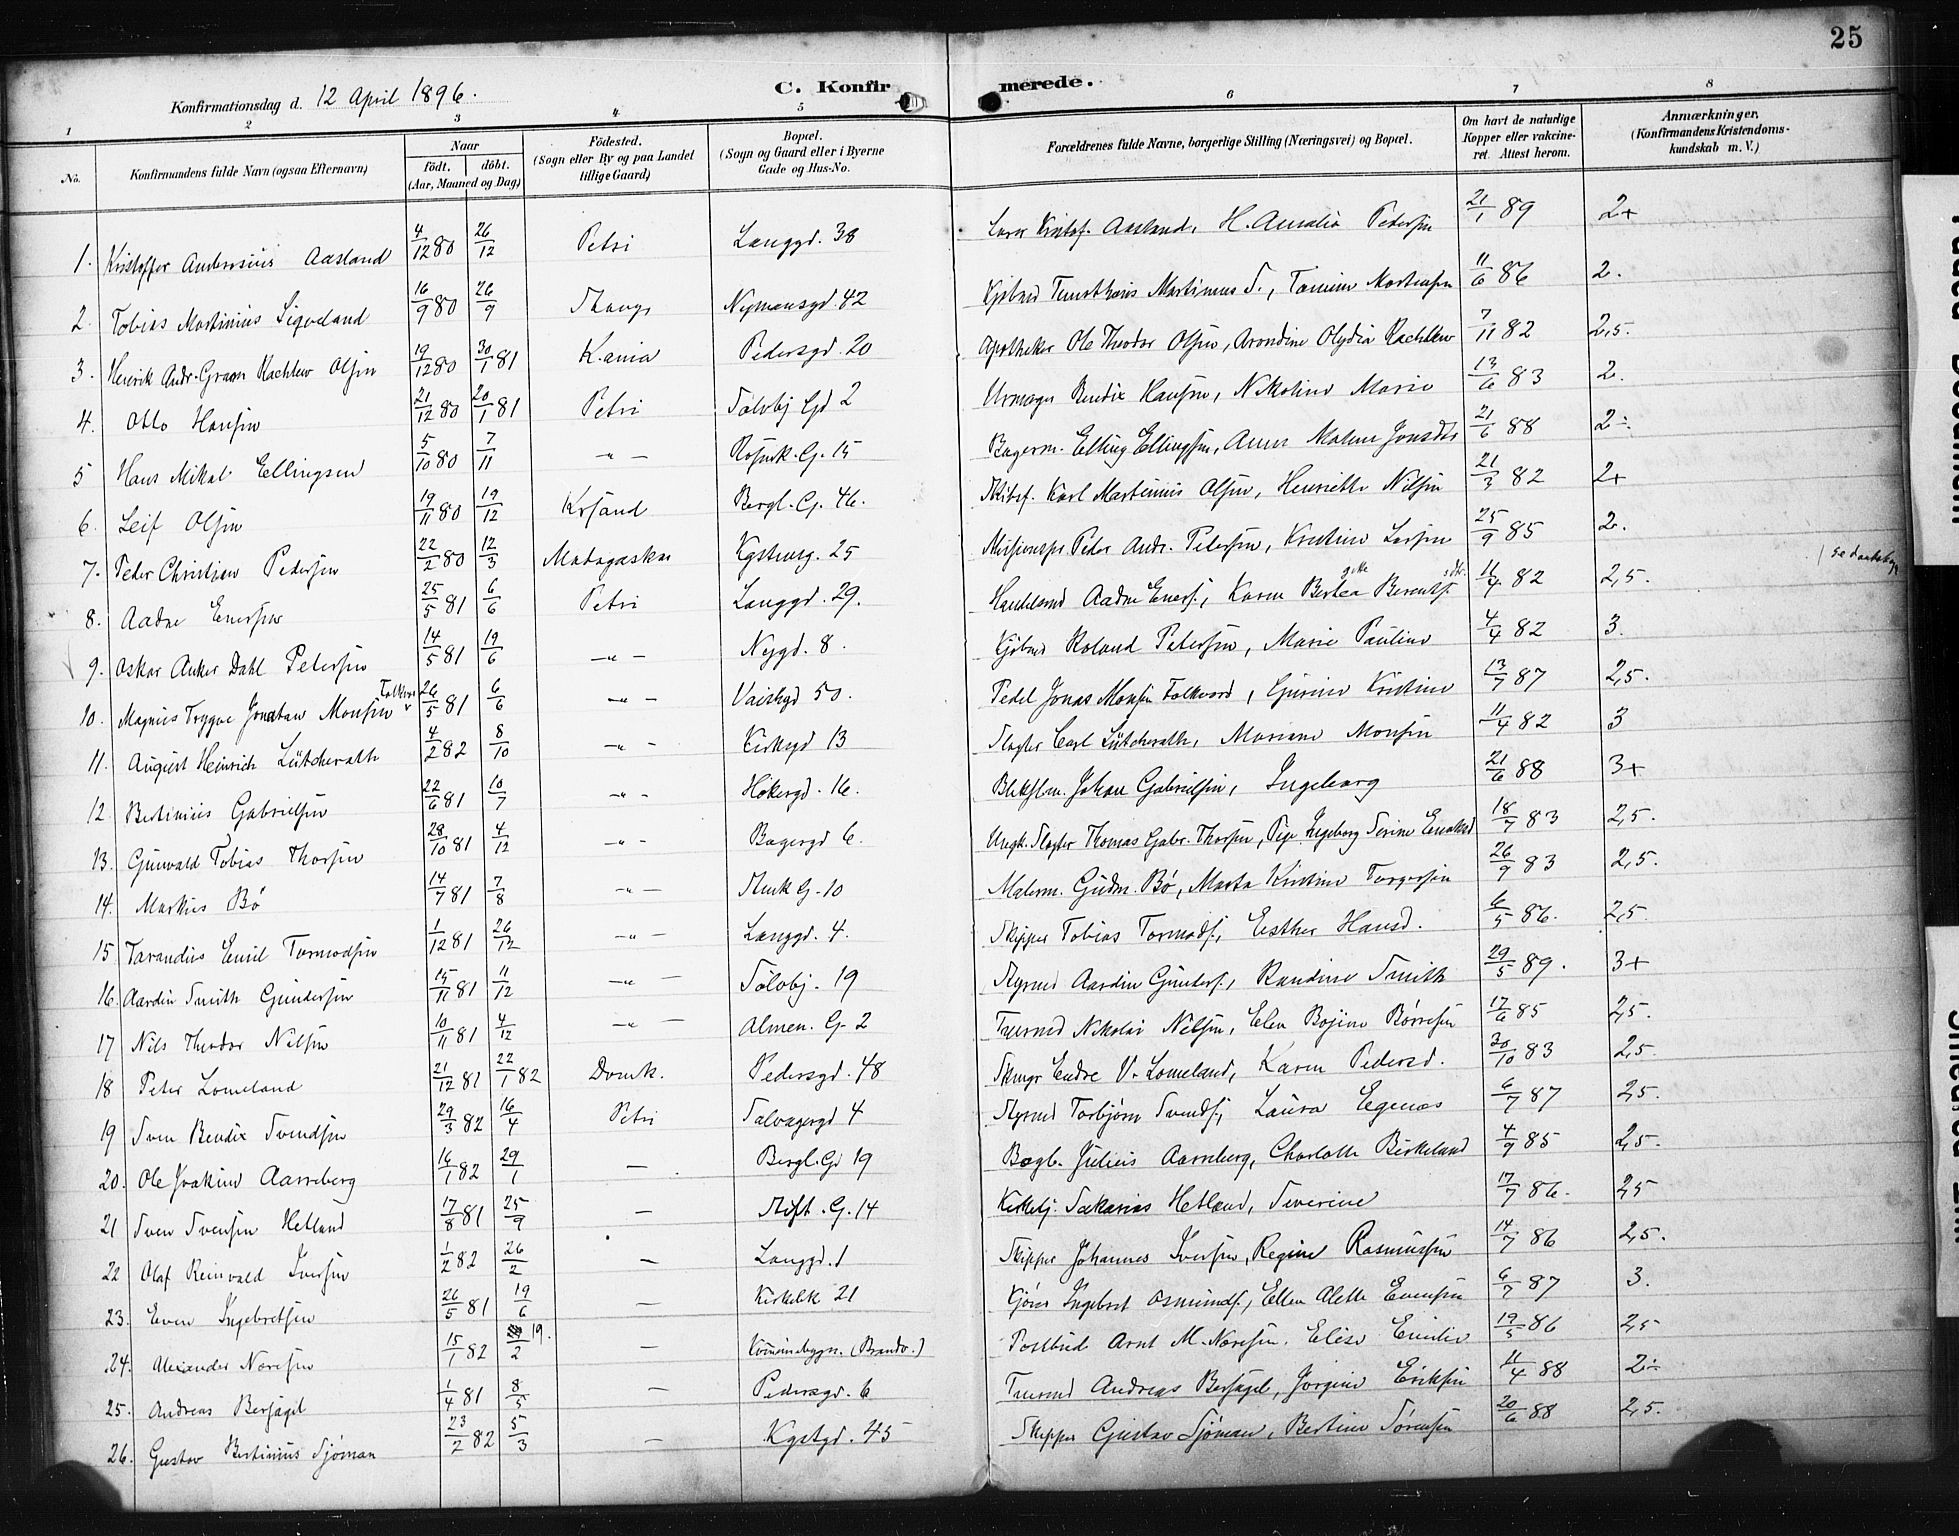 25
Konfirmationsdag d. 12 April 1896.
C. Konfirmerede.
1 2 3 4 5 6 7 8
No.
Konfirmandens fulde Navn (ogsaa Efternavn)
Naar
Födt. döbt.
(Aar, Maaned og Dag)
Födested.
(Sogn eller By og paa Landet
tillige Gaard)
Bopæl.
(Sogn og Gaard eller i Byerne
Gade og Hus-No.
Forældrenes fulde Navne, borgerlige Stilling (Næringsvei) og Bopæl.
Om havt de naturlige
Kopper eller vakcine-
ret. Attest herom.
Anmærkninger.
(Konfirmandens Kristendoms-
kundskab m. V.)
1. Kristoffer Ambrosius Aasland 4/12 80 26/12 Petri Langgd. 38 Kristof. Aasland, H. Amalia Pedersen 21/1 89 2+
2. Tobias Martinius Sigveland 16/9 80 26/9 Stavgr Nymansgd. 42 Kjöbmd Martinius S., Tomine Mortensen 11/6 86 2.
3. Henrik Andr. Gram Rachlew Olsen 19/12 80 30/1 81 K.ania Pedersgd. 20 Apotheker Ole Theodor Olsen, Arondine Olydia Rachlew 7/11 82 2,5.
4. Otto Hansen 21/12 80 20/1 81 Petri Tolvbj Gd 2 Urmager Bendix Hansen, Nikoline Marie 13/6 83 2.
5 Hans Mikal Ellingsen 5/10 80 7/11 -"- Rosenk. G. 15 Bagerm. Elling Ellingsen, Anne Malene Jonsdtr 21/6 88 2÷
6. Leif Olsen 19/11 80 19/12 Krsand Bergl. G. 46. Karl Martinius Olsen, Henriette Nilsen 21/3 82 2+
7. Peder Christian Pedersen 22/2 80 12/3 Madagaskar Kgstensg. 25 Missionspr Peder Andr. Petersen, Kristine Larsen 25/9 85 2.
8. Aadne Enersen 25/5 81 6/6 Petri Langgd. 29. Handelsmd Aadne Eners., Karen Bertea Berents. 11/4 82 2,5.
9. Oskar Anker Dahl Petersen 14/5 81 19/6 -"- Nygd. 8. Kjöbmd Roland Petersen, Marie Pauline 4/4 82 3.
10. Magnus Trygve Jonatan Monsen Falkvor 26/5 81 6/6 -"- Vaishgd 50. Pedel Jonas Monsen Falkvord, Gurine Kristine 13/7 87 2,5.
11. August Heinrich Lütcherath 4/2 82 8/10 -"- Kirkegd 13 Slagter Carl Lütcherath, Mariane Monsen 11/4 82 3
12 Bertinius Gabrielsen 22/6 81 10/7 -"- Hökergd. 16. Blikslm. Johan Gabrielsen, Ingeborg 21/6 88 3+
13. Gunvald Tobias Thorsen 28/10 81 4/12 -"- Bagergd 6. Ungk. Slagter Thomas Gabr. Thorsen, Pige Ingeborg Serine 18/7 83 2,5.
14. Markus Bö 14/7 81 7/8 -"- G. 10 Malerm. Gudm. Bö, Marta Kristine Torgersen 26/9 83 2,5.
15 Tarandius Emil Tormodsen 1/12 81 26/12 -"- Langgd. 4. Skipper Tobias Tormods., Esther Hansd. 6/5 86. 2,5.
16. Aardin Smith Gundersen 15/11 81 11/12 -"- Tolvbj. 19 Styrmd Aardin Gunders., Randine Smith 29/5 89. 3+
17 Nils Theodor Nilsen 10/11 81 4/12 -"- Almen. G. 2 Nikolai Nilsen, Elen Bojine Börresen 17/6 85 2,5.
18 Peter Lomeland 21/12 81 22/1 82 Domk. Pedersgd. 48 Endre V. Lomeland, Karen Pedersd. 30/10 83 2,5.
19 Sven Bendix Svendsen 29/3 82 16/4 Petri Salvagergd 4 Styrmd Torbjörn Svends., Laura Egenæs 6/7 87 2,5.
20. Ole Joakim Aarreberg 16/1 82 29/1 — Bergl. Gd 19 Bogb. Julius Aarreberg, Charlotte Birkeland 4/9 85 2,5.
21 Sven Svensen Hetland 17/8 81 25/9 — Stift. G. 14 Kirketj. Sakarias Hetland, Severine 17/7 86. 2,5
22 Olaf Reinvald Iversen 1/2 82 26/2 — Langgd. 1 Skipper Johannes Iversen, Regine Rasmussen 14/7 86 2,5.
23. Even Ingebretsen 26/5 81 19/6 — Kirkebk 21 Ingebret Osmunds., Ellen Alette Evensen 6/7 87 3.
24. Alexander Noresen 15/1 82 19/2 — (Brandv.) Postbud Arnt M. Noresen. Elise Emilie 19/5 86 2,5
25. Andreas Bersagel 1/4 81 8/5 — Pedersgd. 6 Andreas Bersagel, Jorgine Eriksen 11/4 88 2÷
26. Gustav Bertinius Sjöman 23/2 82 5/3 — Kgstgd. 45 Skipper Gustav Sjöman, Bertine Sörensen 20/6 88 2,5.